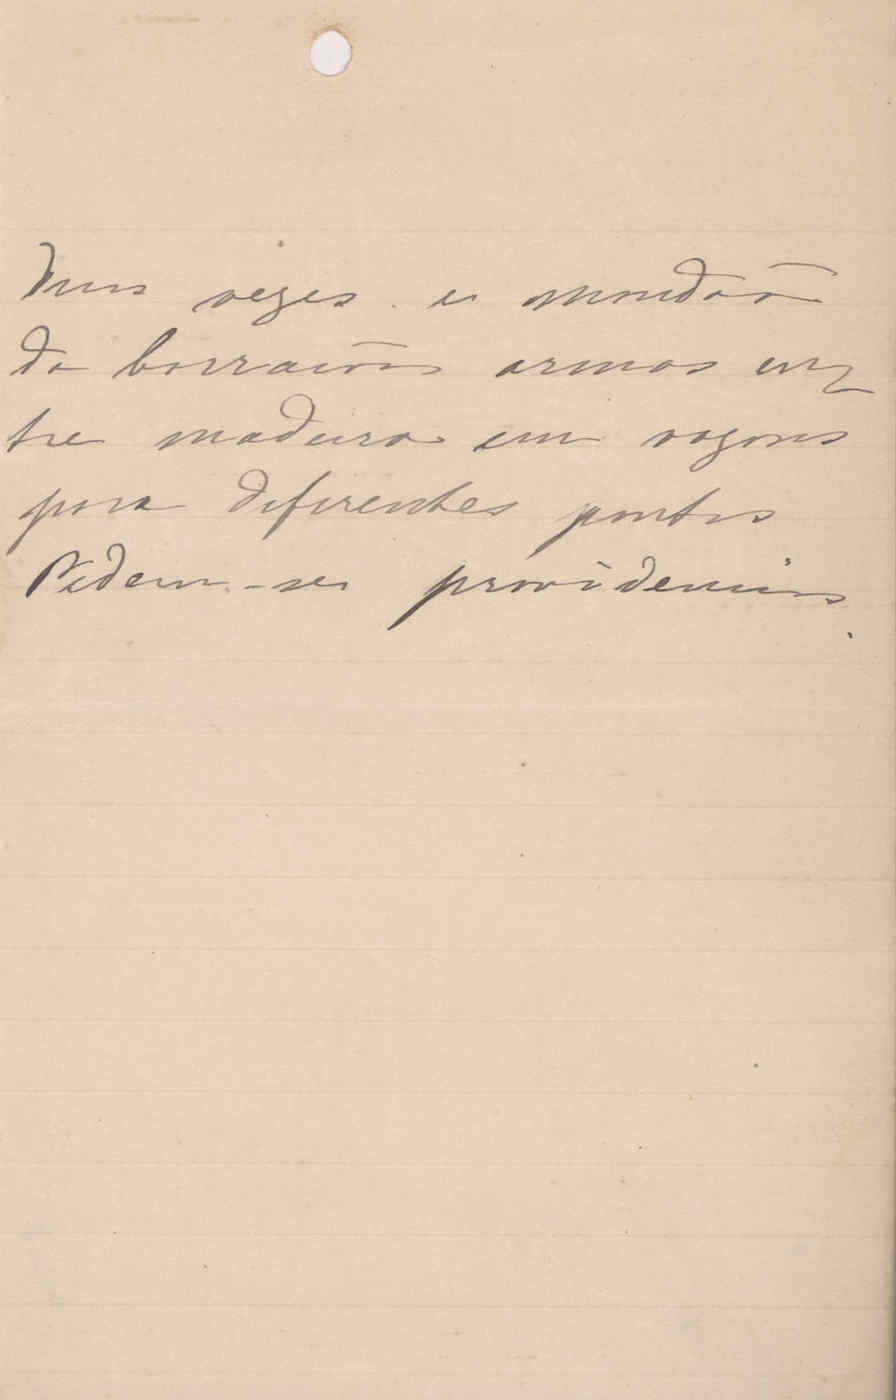 duas vezes e mandão
do barracão armas en-
tre madeira em vagons
para diferentes pontos
Pedem-se providencias.